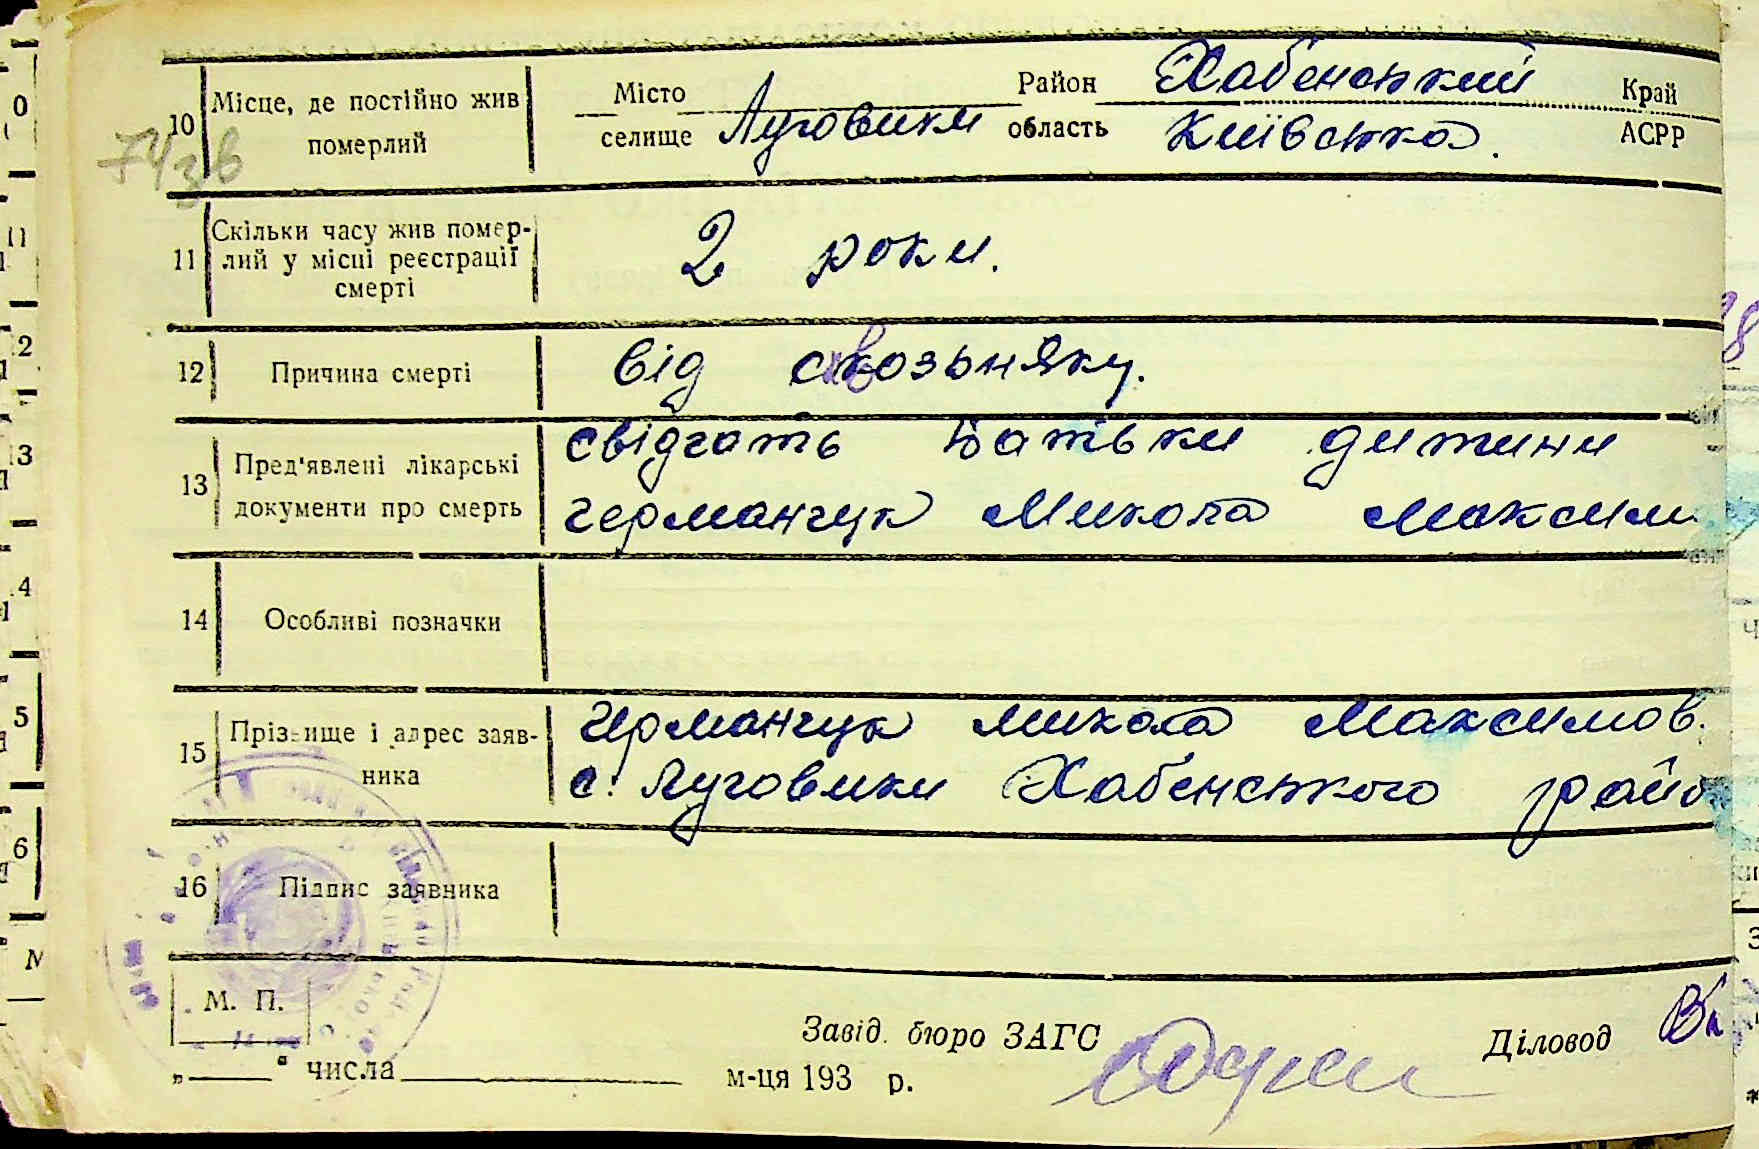 10 Місце, де постійно жив померлий
Місто
селище Луговики
Район Хабенський Край
область Київська. АСРР
11 Скільки часу жив помер-
лий у місці реєстрації
смерті
2 роки.
12 Причина смерті
від сквозьняку.
13 Пред'явлені лікарські
документи про смерть
свідчать батьки дитини
Германчук Микола Максим
14 Особливі позначки
15 Прізвище і адрес заяв-
ника
Германчук Микола Максимов.
с. Луговики Хабенського райо
16 Підпис заявника
М. П.
Завід. бюро ЗАГС
Діловод
„ " числа м-ця 193 р.